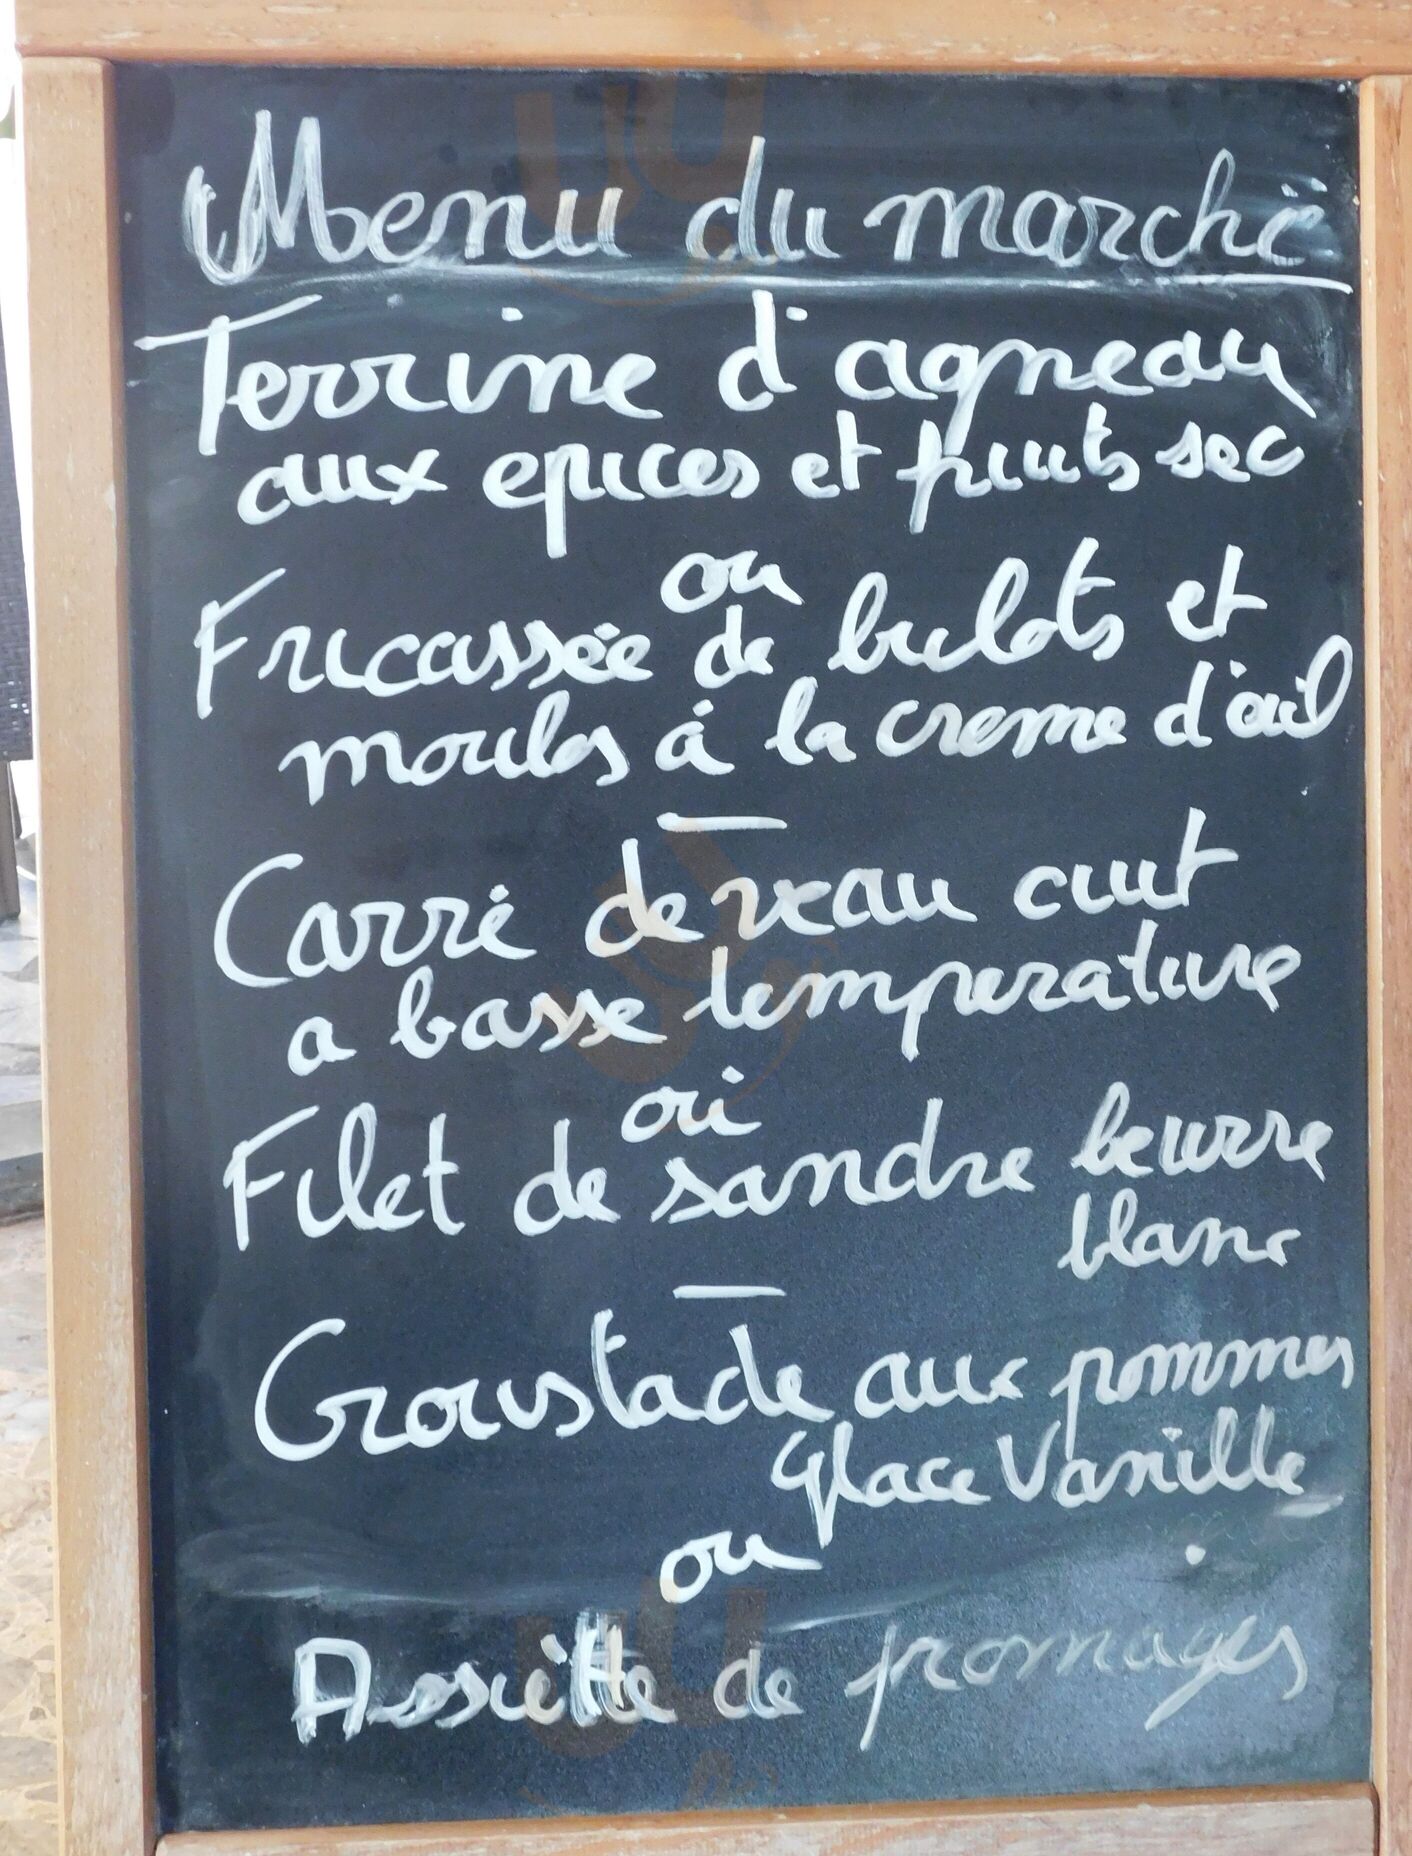 Menu du marché
Terrine d'agneau
aux epices et fruits sec
ou
Fricassée de bulots et
moules à la creme d'ail
Carré de veau cuit
a basse temperature
ou
Filet de sandre beurre
blanc
Croustade aux pommes
Glace Vanille
ou
Assiette de fromages